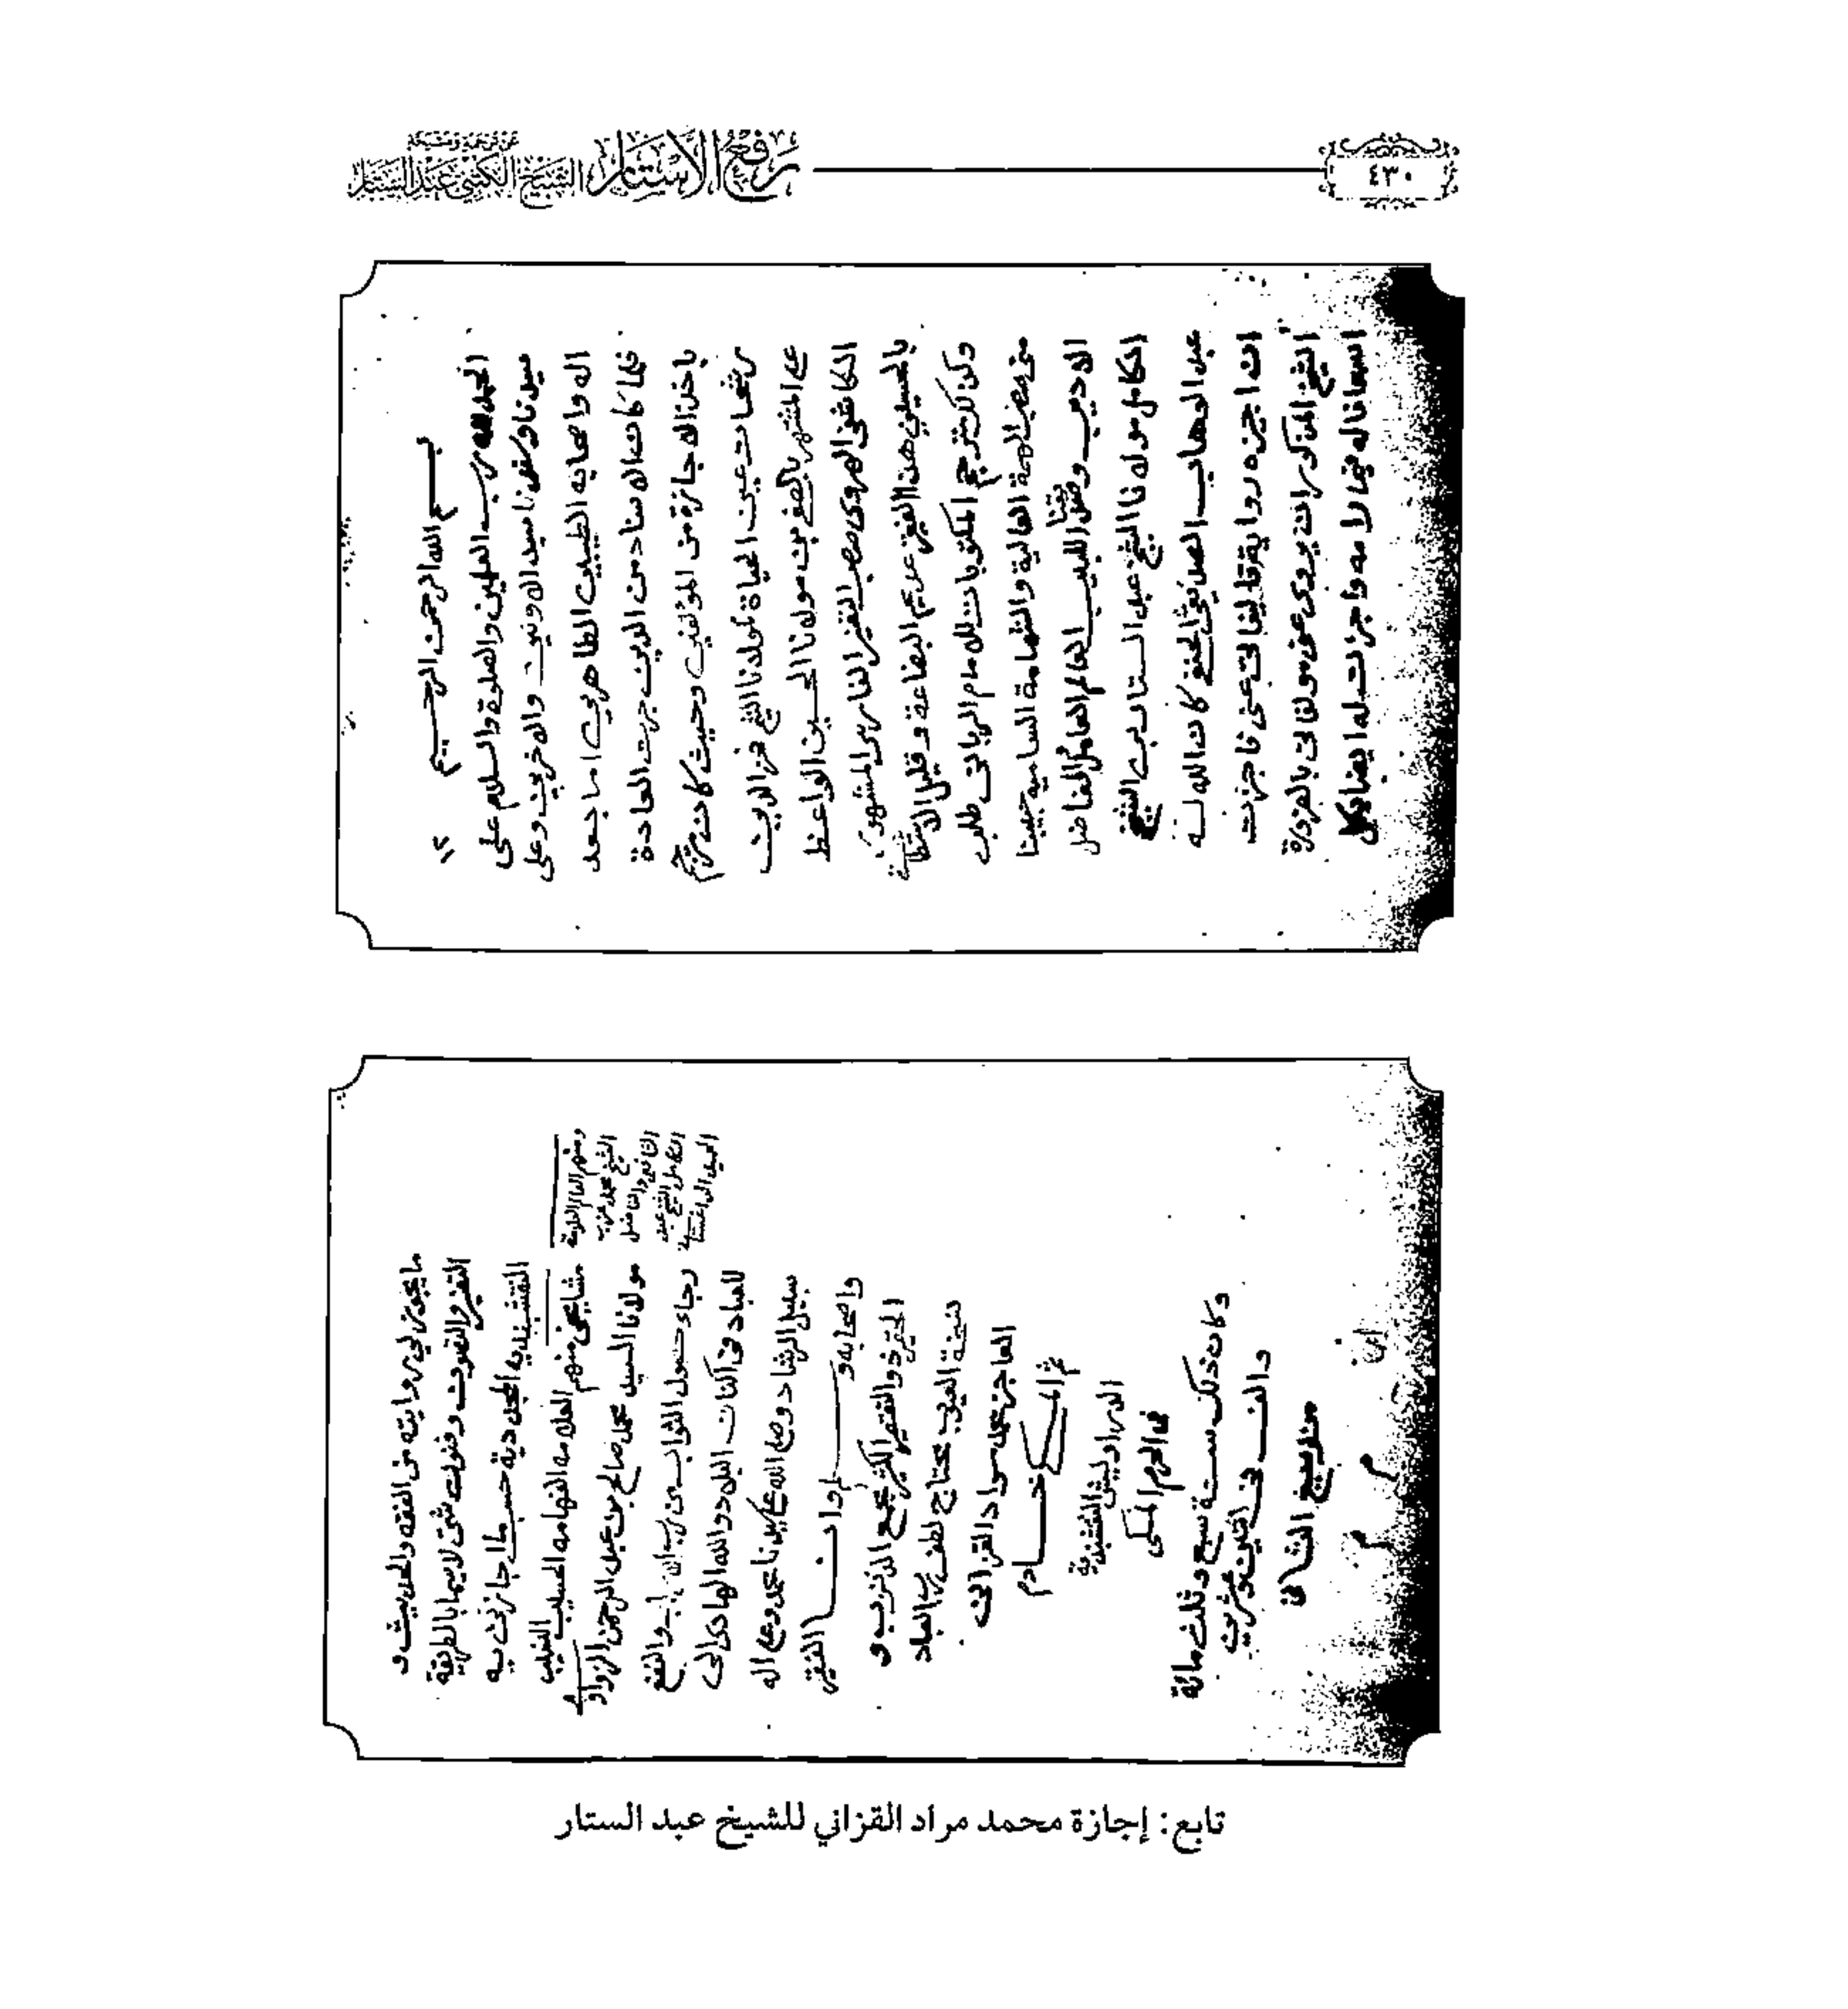 ٤٣٠
رفع الأستار
الشيخ الكتبي عبد الستار
بسم الله الرحمن الرحيم
الحمد لله رب العلمين والصلوة والسلام على
سيدنا وسندنا سيد الاولين والاخرين وعلى
اله واصحابه الطيبين الطاهرين اما بعد
فلما كان الاسناد من الدين جرت العادة
باخذ الاجازة من المؤلفين وحيث كان مترجم
رشحات عين الحياة لمولانا الشيخ فخر الدين
على المشتهر بالصفى بن مولانا الحسين الواعظ
الكاشفى الهروى معرب الفقير الفارسى المشهور
بالحسينى هذا الفقير عديم البضاعة وقليل الاستطاعة
وكذلك مترجم المكتوبات للامام الربانى طلب
منى صاحب الهمة العالية والشهامة السامية حبيبنا
الاديب وصديقنا اللبيب العالم العامل الفاضل
الكامل مولانا الشيخ عبد الستار بن الشيخ
عبد الوهاب الصديقى الحنفى كان الله له
ان اجزه رواية تاليفاتى عنى فاجزت
الشيخ المذكور ان يروى عنى مولفاتى بالمذكورة
اسعافا له فى مرامه واجزت له ايضا بكل
ما يجوز لى روايته من الفقه والحديث و
التفسير والتصوف وفنون شتى لاسيما بالطريقة
النقشبندية المجددية حسب ما اجازنى به
مشايخى منهم العلامه الفهامه الحسيب النسيب
مولانا السيد محمد صالح بن عبد الرحمن الزواوى
ومنهم العالم العلامة
الشيخ محمد مظهر
الفاضل الشيخ عبد
الحميد الداغستانى
رجاء حصول الثواب من رب الارباب والنفع
للعباد فى اكناف البلاد والله الهادى الى
سبيل الرشاد وصلى الله على سيدنا محمد وعلى اله
واصحابه وسلم وانا الفقير
الحقير ذو التقصير الكثير مجمع الذنوب و
العيوب محتاج لطف رب العباد
العاجز محمد مراد القزانى
ثم المكى خادم
الدراويش النقشبندية
فى الحرم المكى
وكان ذلك سنة سبع وثلثمائة
والف فى اثنين وعشرين
من ربيع الثانى
تابع: إجازة محمد مراد القزاني للشيخ عبد الستار